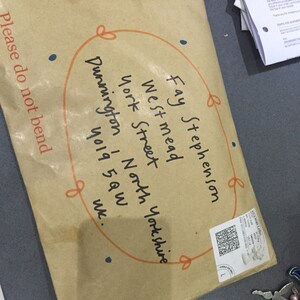 Please do not bend
Fay Stephenson
Westmead
York Street
Dunnington, North Yorkshire
YO19 5QW
UK.